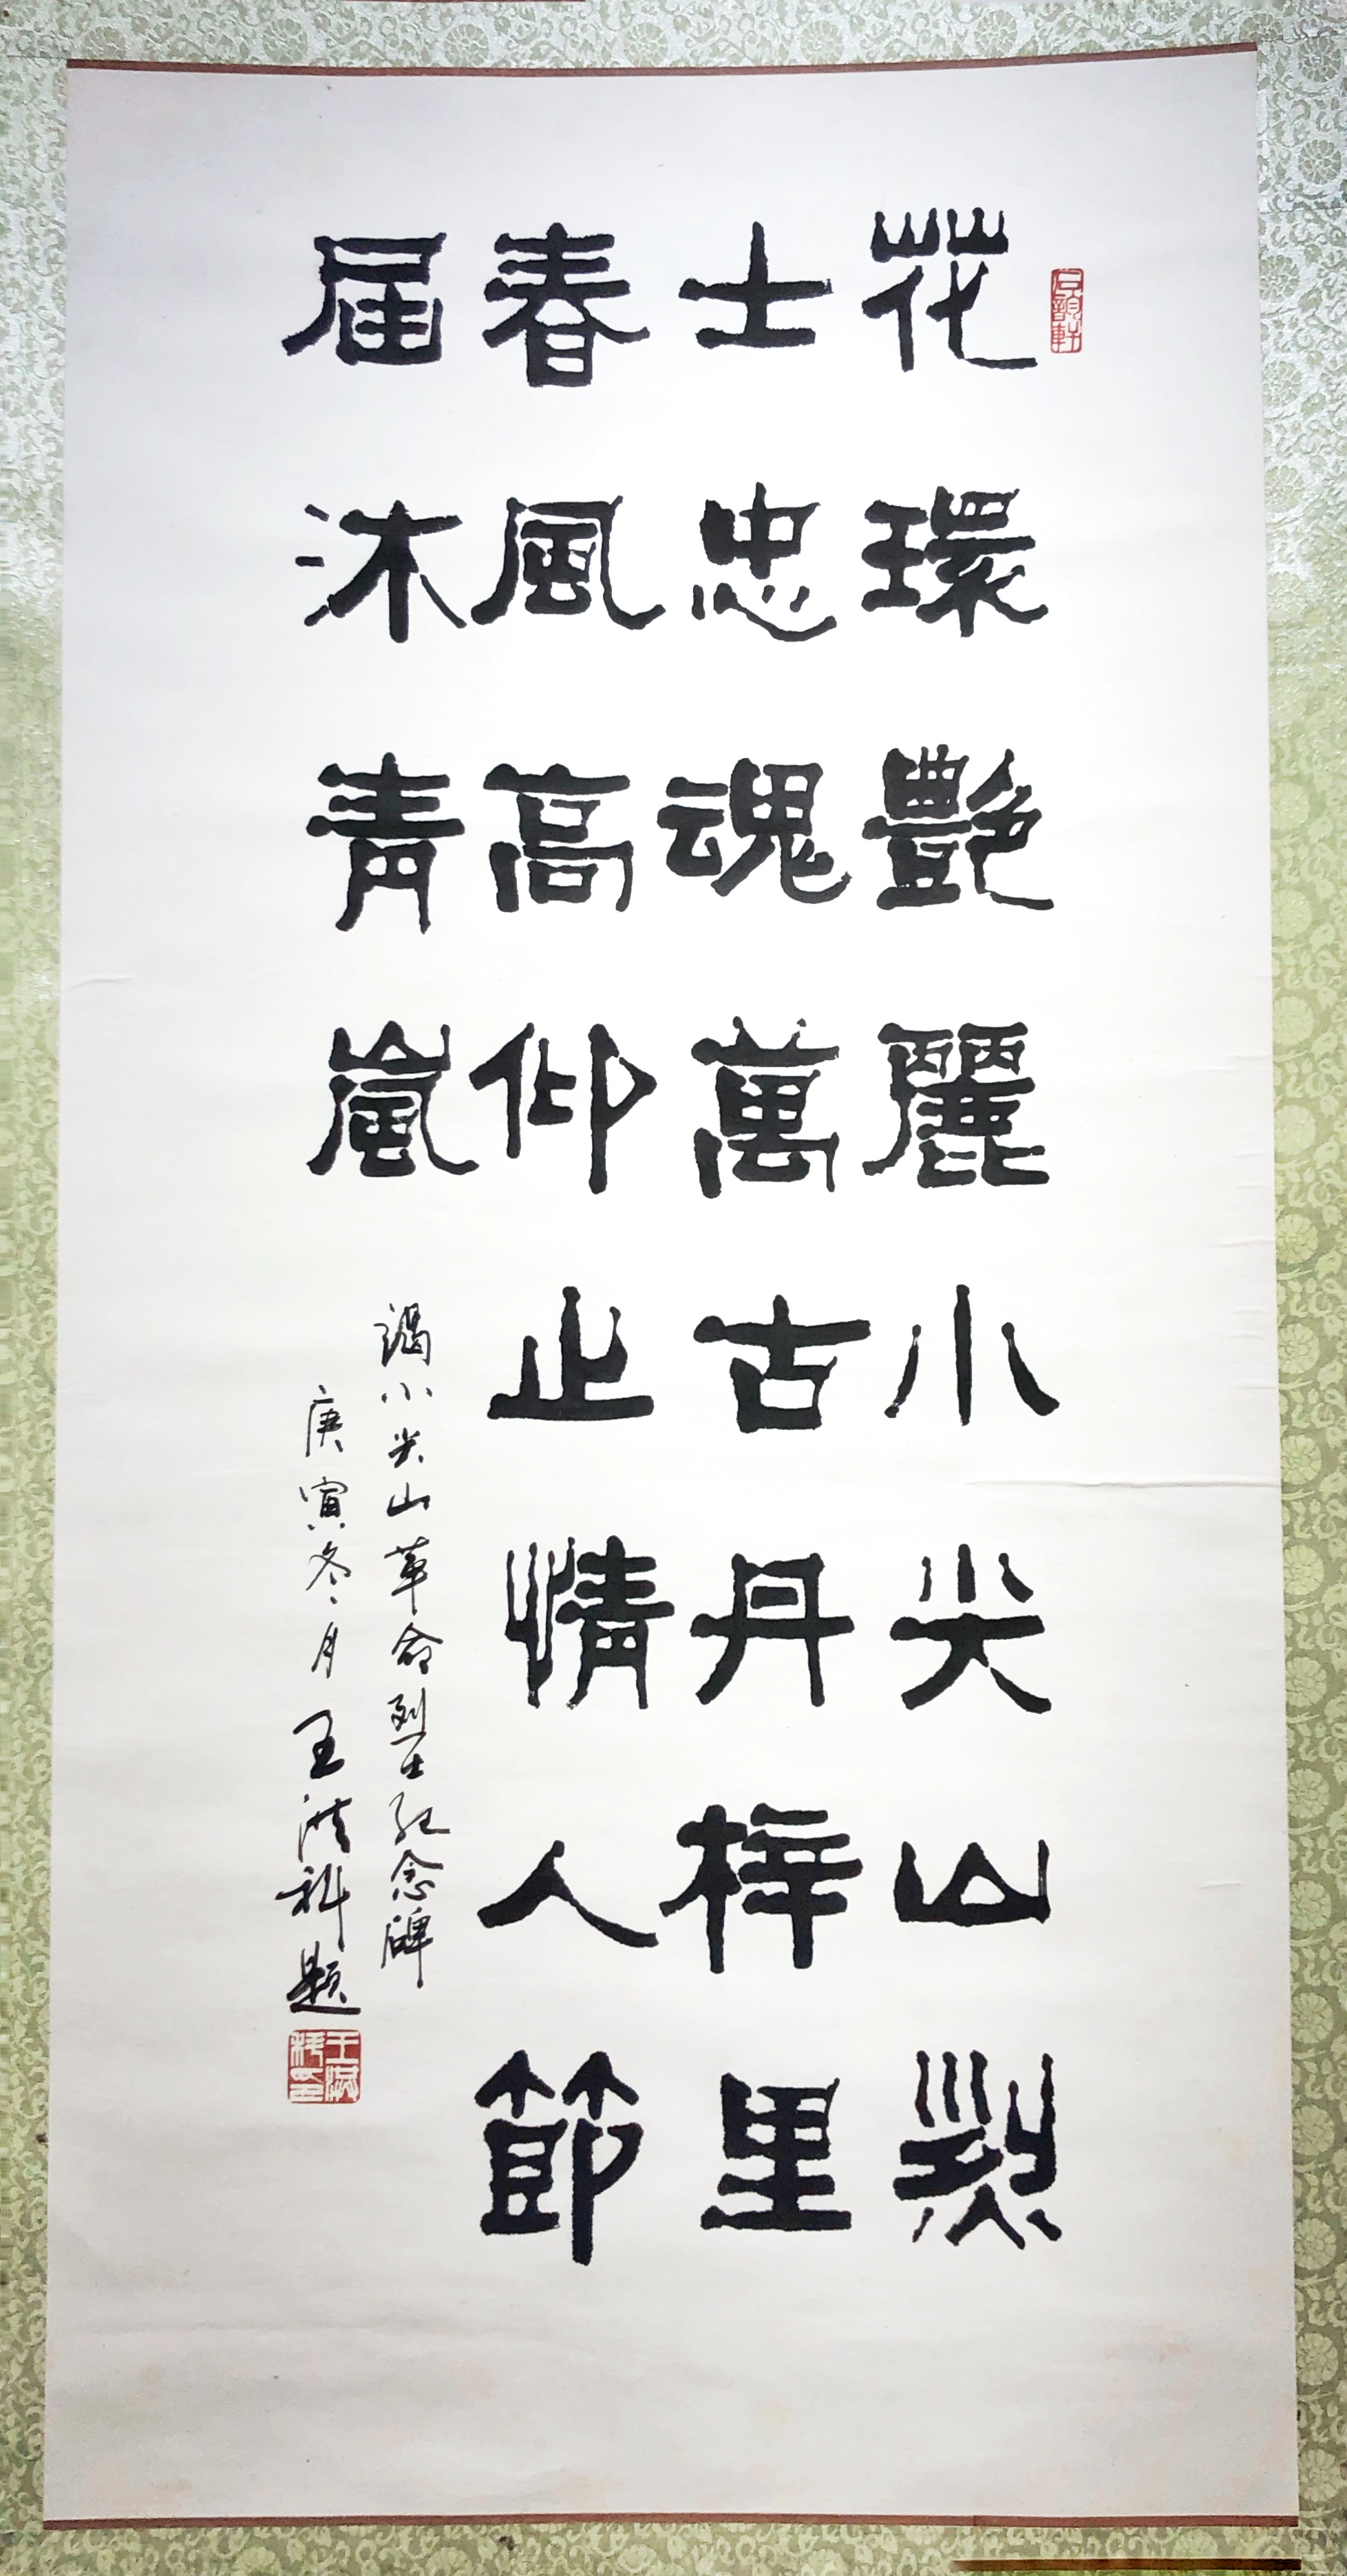 花環艷麗小尖山烈
士忠魂萬古丹梓里
春風高仰止情人節
屆沐青嵐
謁小尖山革命烈士紀念碑
庚寅冬月王洪科題